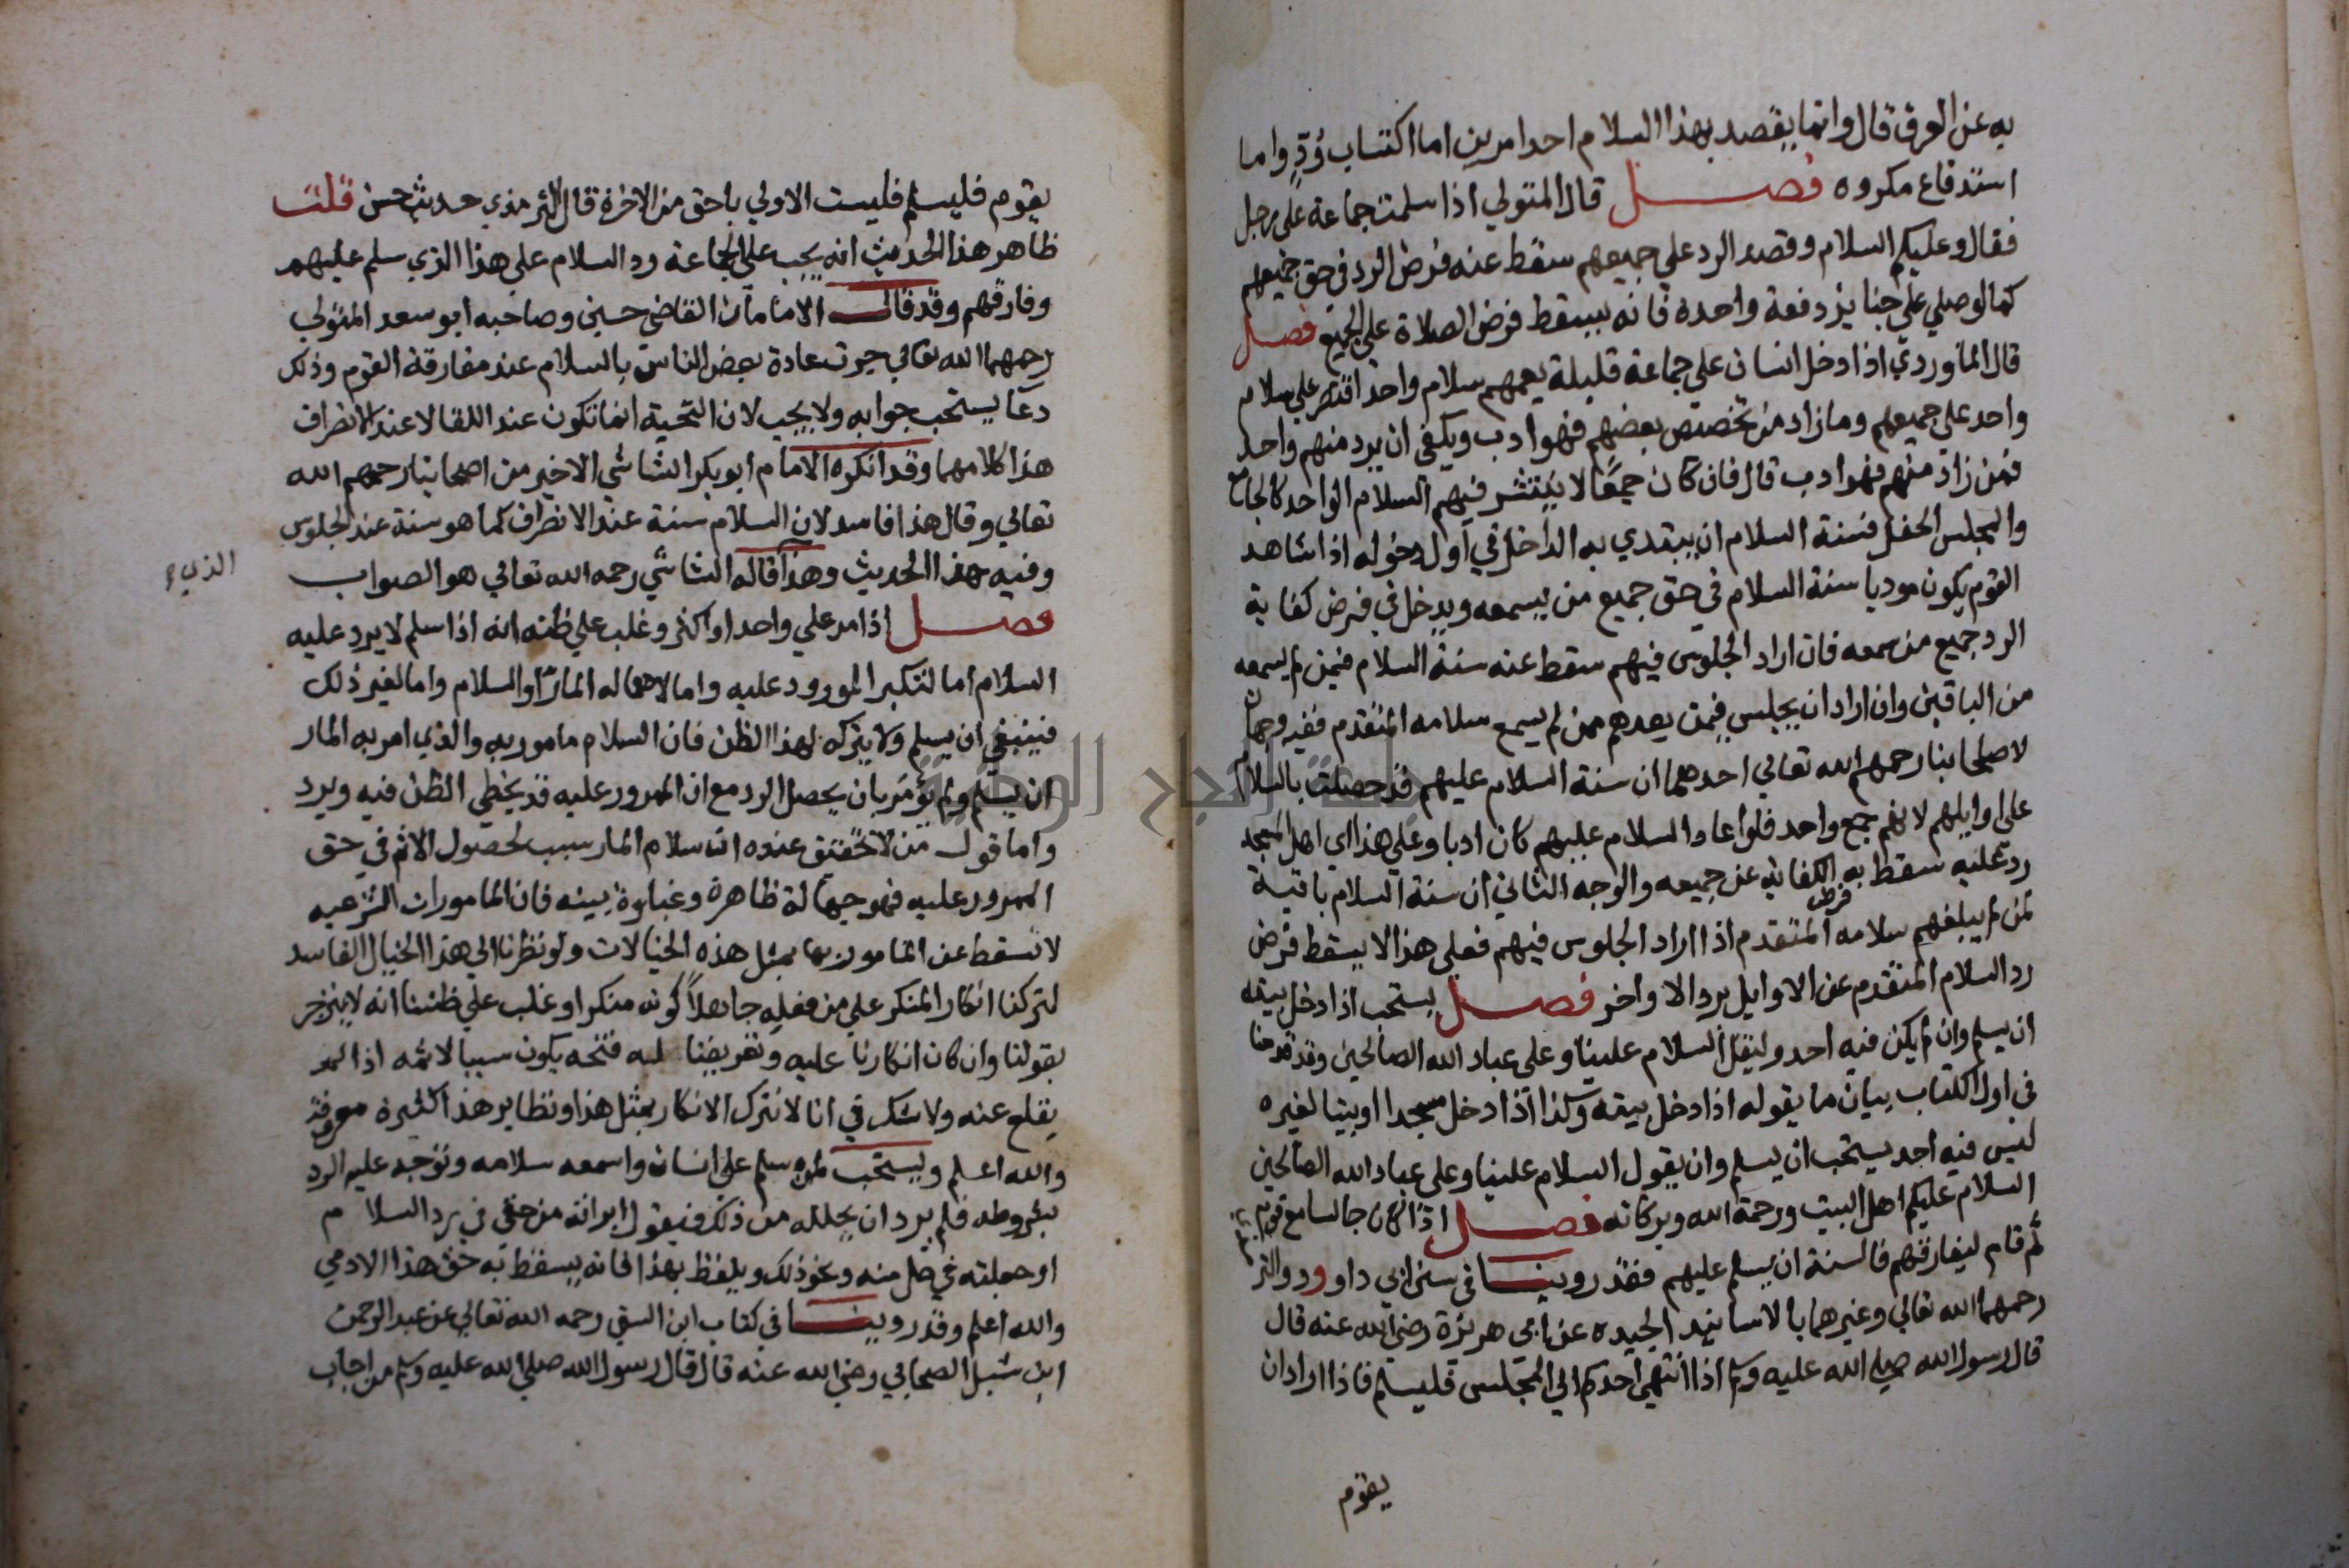 به عن العرف قال وانما يقصد بهذا السلام احد امرين اما اكتساب وُدٍّ واما
استدفاع مكروه فصل قال المتولي اذا سلمت جماعة على رجل
فقال وعليكم السلام وقصد الرد على جميعهم سقط عنه فرض الرد في حق جميعهم
كما لو صلي على جنايز دفعة واحدة فانه يسقط فرض الصلاة على الجميع فصل
قال الماوردي اذا دخل انسان على جماعة قليلة يعمهم سلام واحد اقتصر على سلام
واحد على جميعهم وما زاد من تخصيص بعضهم فهو ادب ويكفي ان يرد منهم واحد
فمن زاد منهم فهو ادب قال فان كان جمعًا لا ينتشر فيهم السلام الواحد كالجامع
والمجلس الحفل فسنة السلام ان يبتدي به الداخل في اول دخوله اذا شاهد
القوم يكون موديا سنة السلام في حق جميع من يسمعه ويدخل في فرض كفاية
الرد جميع من سمعه فان اراد الجلوس فيهم سقط عنه سنة السلام فيمن لم يسمعه
من الباقين وان اراد ان يجلس فيمن بعدهم ممن لم يسمع سلامه المتقدم ففيه وجهان
لاصحابنا رحمهم الله تعالي احدهما ان سنة السلام عليهم قد حصلت بالسلام
على اوايلهم لانهم جمع واحد فلو اعاد السلام عليهم كان ادبا وعلي هذا اي اهل المسجد
رد عليه سقط به فرض الكفاية عن جميعه والوجه الثاني ان سنة السلام باقية
لمن لم يبلغهم سلامه المتقدم اذا اراد الجلوس فيهم فعلي هذا لا يسقط فرض
رد السلام المتقدم عن الاوايل برد الاواخر فصل يستحب اذا دخل بيته
ان يسلم وان لم يكن فيه احد وليقل السلام علينا وعلى عباد الله الصالحين وقد قدمنا
في اول الكتاب بيان ما يقوله اذا دخل بيته وكذا اذا دخل مسجدا او بيتا لغيره
ليس فيه احد يستحب ان يسلم وان يقول السلام علينا وعلى عباد الله الصالحين
السلام عليكم اهل البيت ورحمة الله وبركاته فصل اذا كان جالسا مع قوم
ثم قام ليفارقهم فالسنة ان يسلم عليهم فقد روينا في سنن ابي داوود والتر
رحمهما الله تعالي وغيرهما بالاسانيد الجيدة عن ابي هريرة رضي الله عنه قال
قال رسول الله صلى الله عليه وسلم اذا انتهي احدكم الي المجلس فليسلم فاذا اراد ان
يقوم
يقوم فليسلم فليست الاولي باحق من الاخرة قال الترمذي حديث حسن قلت
ظاهر هذا الحديث انه يجب على الجماعة رد السلام على هذا الذي سلم عليهم
وفارقهم وقد قال الامامان القاضي حسين وصاحبه ابو سعد المتولي
رحمهما الله تعالي جرت عادة بعض الناس بالسلام عند مفارقة القوم وذلك
دعا يستحب جوابه ولا يجب لان التحية انما تكون عند اللقا لا عند الانصراف
هذا كلامهما وقد انكره الامام ابو بكر الشاشي الاخير من اصحابنا رحمهم الله
تعالي وقال هذا فاسد لان السلام سنة عند الانصراف كما هو سنة عند الجلوس
وفيه هذا الحديث وهذا قاله الشاشي رحمه الله تعالي هو الصواب
الذي
فصل اذا مر علي واحد او اكثر وغلب علي ظنه انه اذا سلم لا يرد عليه
السلام اما لتكبر الممرور عليه واما لاهماله المارّ او السلام واما لغير ذلك
فينبغي ان يسلم ولا يتركه لهذا الظن فان السلام مامور به والذي امر به المار
ان يسلم ولم يؤمر بان يحصل الرد مع ان الممرور عليه قد يخطي الظن فيه ويرد
واما قول من لا تحقيق عنده ان سلام المار سبب لحصول الاثم في حق
الممرور عليه فهو جهالة ظاهرة وغباوة بينه فان المامورات الشرعيه
لا تسقط عن المامور بها بمثل هذه الخيالات ولو نظرنا الي هذا الخيال الفاسد
لتركنا انكار المنكر علي من فعله جاهلاً كونه منكرا وغلب علي ظننا انه لا ينزجر
بقولنا وان كان انكارنا عليه وتعريفنا له قبحه يكون سببا لاثمه اذا لم
يقلع عنه ولا شك في انا لا نترك الانكار بمثل هذا ونظاير هذا كثيرة معروفة
والله اعلم ويستحب لمن سلم على انسان واسمعه سلامه وتوجه عليه الرد
بشروطه فلم يرد ان يحلله من ذلك فيقول ابراته من حقي في رد السلام
او جعلته في حل منه ونحو ذلك ويلفظ بهذا فانه يسقط به حق هذا الادمي
والله اعلم وقد روينا في كتاب ابن السني رحمه الله تعالي عن عبد الرحمن
ابن شبل الصحابي رضي الله عنه قال قال رسول الله صلي الله عليه وسلم من اجاب
جامعة النجاح الوطنية